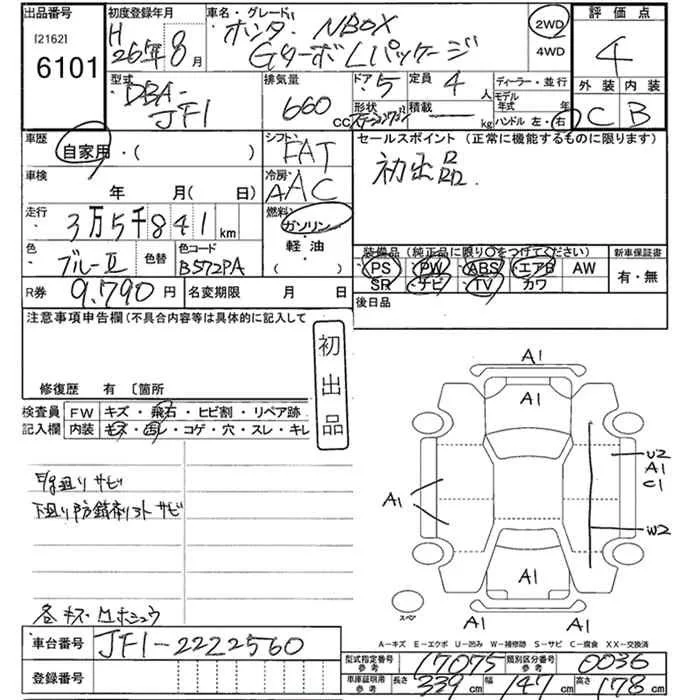 出品番号
[2162]
6101
初度登録年月
H 26年8月
車名・グレード
ホンダ NBOX
Gターボ Lパッケージ
2WD
4WD
評価点
4
外装 内装
C B
型式
DBA-
JF1
排気量
660 CC
ドア 5
形状
定員 4人
積載 ― kg
ディーラー・並行
モデル年式 年
ハンドル 左・右
車歴
自家用・( )
シフト
FAT
セールスポイント (正常に機能するものに限ります)
初出品
車検
年 月( 日)
冷房
AAC
走行
3万5千841km
燃料
ガソリン
軽油
( )
色
ブルーII
色替
色コード
B572PA
装備品 (純正品に限り○をつけてください)
PS PW ABS エアB AW
SR ナビ TV カワ
新車保証書
有・無
R券 9,790円
名変期限 月 日
後日品
注意事項申告欄(不具合内容等は具体的に記入して
初出品
修復歴 有 〔箇所
検査員 FW キズ・飛石・ヒビ割・リペア跡
記入欄 内装 キズ・汚レ・コゲ・穴・スレ・キレ
下廻りサビ
下廻り防錆剤フト サビ
各キズ・凹 ホシュウ
A1
A1
A1
U2
A1
C1
W2
A1
A1 A1
スペア
A-キズ E-エクボ U-凹み W-補修跡 S-サビ C-腐食 XX-交換済
車台番号 JF1-2222560
登録番号
型式指定番号 参考 17075 類別区分番号 参考 0036
車庫証明用 参考 長さ 339cm 幅 147cm 高さ 178cm